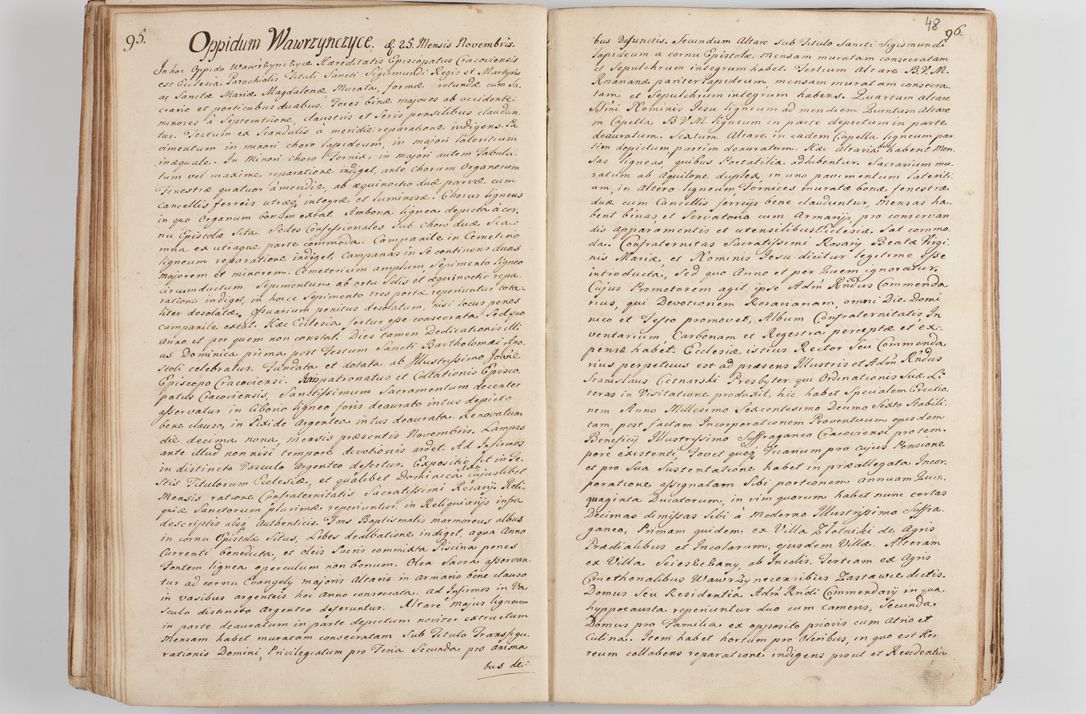 95.
Oppidum Wawrzynczyce. d. 25. Mensis Novembris.
In hoc Oppido Wawrzynczyce Hæreditatis Episcopatus Cracoviensis
est Ecclesia Parochialis Tituli Sancti Sigismundi Regis et Martyris
ac Sanctæ Mariæ Magdalenæ Murata, formæ rotundæ cum Sa,
crario et porticubus duabus. Fores binæ majores ab occidente
minores à Septemtrione, claustris et Seris pensilibus claudun,
tur. Tectum ex Scandulis à meridie reparatione indigens. Pa
vimentum in minori choro lapideum, in majori lateritium
inæquale. In Minori choro Fornix, in majori autem Tabula
tum vel maxime reparatione indiget, ante Chorum Organorum
Fenestræ quatuor à meridie, ab æquinoctio duæ parvæ cum
Cancellis ferreis utræq integræ et luminosæ. Chorus ligneus
in quo Organum bonum extat. Ambona lignea depicta à cor,
nu Epistolæ Sita. Sedes Confessionales Sub Choro duæ Sca,
mna ex utraque parte commoda. Campanile in Cœmeterio
ligneum reparatione indiget, Campanas in Se continens duas
majorem et minorem. Cœmeterium amplum Sepimento ligneo
circumductum Sepimentum ab ortu Solis et æquinoctio repa,
ratione indiget, in hocce Sepimento tres portæ reperiuntur tota,
liter desolatæ. Ossuarium penitus desolatum, nisi locus penes
campanile extat. Hæc Ecclesia fertur esse consecrata. Sed quo
Anno et per quem non constat. Dies tamen Dedicationis illi
us Dominica prima post Festum Sancti Bartholomæi Apo,
stoli celebratur. Fundata et dotata ab Illustrissimo Joanne
Episcopo Cracoviensi. Juris patronatus et Collationis Episco,
patus Cracoviensis, Sanctissimum Sacramentum decenter
asservatur in Ciborio ligneo foris deaurato intus depicto
bene clauso, in Pixide Argentea intus deaurata. Renovatum
die decima nona, mensis præsentis Novembris. Lampas
ante illud non nisi tempore devotionis ardet. Ad Infirmos
in distincto Vasculo Argenteo defertur. Expositio fit in Fe,
stis Titulorum Ecclesiæ, et qualibet Dominica cujuslibet
Mensis ratione Confraternitatis Sacratissimi Rosarij. Reli,
quiæ Sanctorum plurimæ reperiuntur in Reliquiarijs infra
descriptis absq authenticis. Fons Baptismalis marmoreus albus
in cornu Epistolæ Situs, Lebes dealbatione indiget, aqua Anno
Currenti benedicta, et oleis Sacris commixta Piscina penes
Fontem lignea operculum non bonum. Olea Sacra asservan,
tur ad cornu Evangely majoris Altaris in Armario bene clauso
in vasibus argenteis hoc Anno consecrata. Ad Infirmos in Va
sculo distincto Argenteo deferuntur. Altare majus ligneum
in parte deauratum in parte depictum noviter extructum
Mensam habet muratam consecratam Sub Titulo Transfigu,
rationis Domini, Privilegiatum pro Feria Secunda pro anima
bus de:
48
96.
bus Defunctis. Secundum Altare Sub Titulo Sancti Sigismundi
lapideum a cornu Epistolæ, Mensam muratam consecratam
et Sepulchrum integrum habet. Tertium Altare B.V.M.
Rosananæ pariter lapideum, mensam muratam consecra,
tam et Sepulchrum integrum habens. Quartum altare
Sstmi Nominis Jesu ligneum ad mendem Quintum Altare
in Capella B V M ligneum in parte depictum in parte
deauratum. Sextum Altare in eadem Capella ligneum par
tim depictum partim deauratum. Hæc Altaria habent Men
Sas ligneas quibus Portatilia adhibentur. Sacrarium mu,
ratum ab Aquilone duplex, in uno pavimentum lateriti,
um, in Altero ligneum Fornices muratæ bonæ, fenestræ
duæ cum Cancellis ferreis bene clauduntur, Mensas ha,
bent binas et Servatoria cum Armarijs, pro conservan
dis apparamentis et utensilibus Ecclesiæ, Sat commo
da. Confraternitas Sacratissimi Rosarij Beatæ Virgi,
nis Mariæ, et Nominis Jesu dicitur legitime Esse
introducta, Sed quo Anno et per Quem ignoratur,
Cujus Promotorem agit ipse Adm Rndus Commenda,
rius, qui Devotionem Rosananam, omni Die Domi
nico et Festo promovet, Album Confraternitatis, In
ventarium Carbonam et Regestra perceptæ et ex,
pensæ habet. Ecclesiæ istius Rector Seu Commenda,
rius perpetuus est ad præsens Illustris et Adm Rndus
Stanislaus Cetnarski Presbyter qui Ordinationis Suæ Li
teras in Visitatione produxit, hic habet Specialem Erectio
nem Anno Millesimo Sexcentesimo Decimo Sexto Stabili,
tam, post factam Incorporationem Proventuum ejusdem
Beneficij Illustrissimo Suffraganeo Cracoviensi pro tem,
pore existenti, Fovet quoq Vicarium pro cujus Pensione
et pro Sua Sustentatione habet in præallegata Incor,
poratione assignatam Sibi portionem annuam Quin,
quaginta Ducatorum, in vim quorum habet nunc certas
Decimas dimissas Sibi à Moderno Illustrissimo Suffra,
ganeo, Primam quidem ex Villa Złotniki de Agris
Prædialibus et Incolarum, ejusdem Villæ. Alteram
ex Villa ab Incolis. Tertiam ex Agris
Cmethonalibus Wawrzynecensibus Zastawie dictis.
Domus Seu Residentia Admi Rndi Commendarij in qua
hyppocausta reperiuntur duo cum camera, Secunda
Domus pro Familia ex opposito prioris cum Atrio et
Culina. Item habet hortum pro Oleribus, in quo est Hor
reum collabens reparatione indigens procul et Residentia